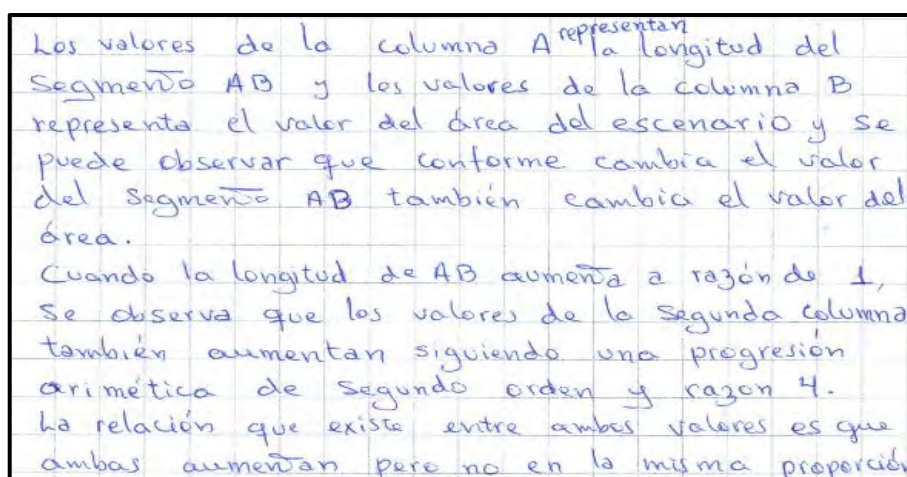 Los valores de la columna A representan la longitud del
segmento AB y los valores de la columna B
representa el valor del área del escenario y se
puede observar que conforme cambia el valor
del segmento AB también cambia el valor del
área.
Cuando la longitud de AB aumenta a razón de 1,
se observa que los valores de la segunda columna
también aumentan siguiendo una progresión
arimética de segundo orden y razon 4.
La relación que existe entre ambos valores es que
ambas aumentan pero no en la misma proporción